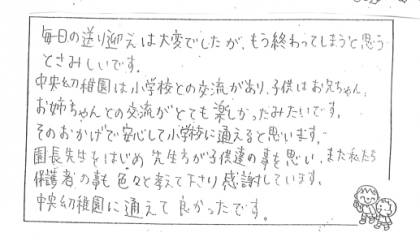 毎日の送り迎えは大変でしたが、もう終わってしまうと思う
とさみしいです。
中央幼稚園は小学校との交流があり、子供はお兄ちゃん、
お姉ちゃんとの交流がとても楽しかったみたいです。
そのおかげで安心して小学校に通えると思います。
園長先生をはじめ 先生方が子供達の事を思い、また私たち
保護者の事も色々と考えて下さり感謝しています。
中央幼稚園に通えて良かったです。